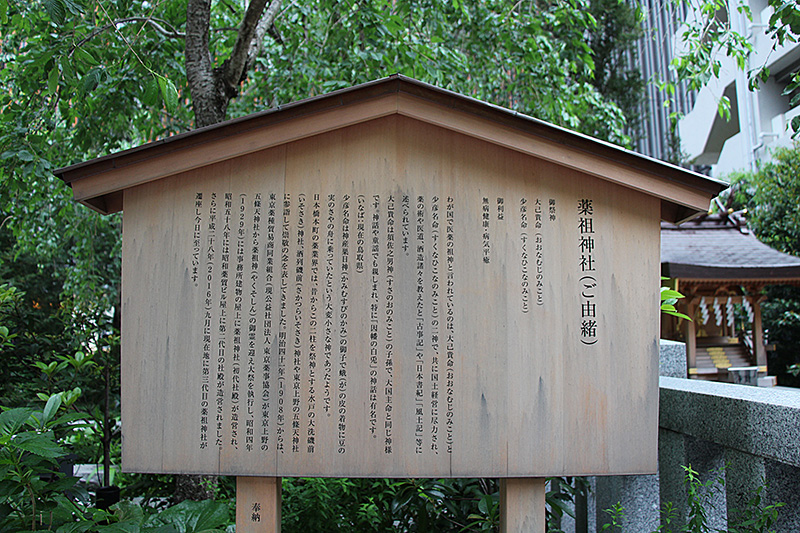 薬祖神社(ご由緒)
御祭神
大己貴命(おおなむじのみこと)
少彦名命(すくなひこなのみこと)
御利益
無病健康・病気平癒
わが国で医薬の祖神と言われているのは、大己貴命(おおなむじのみこと)と
少彦名命(すくなひこなのみこと)の二神で、共に国土経営に尽力され、
薬の術や医道、酒造諸々を教えたと「古事記」や「日本書紀」「風土記」等に
述べられています。
大己貴命は須佐之男神(すさのおのみこと)の子孫で、大国主命と同じ神様
です。神話や童謡でも親しまれ、特に「因幡の白兎」の神話は有名です。
(いなば:現在の鳥取県)
少彦名命は神産巣日神(かみむすびのかみ)の御子で蛾(が)の皮の着物に豆の
実のさやの舟に乗っていたという大変小さな神であったようです。
日本橋本町の薬業界では、昔からこの二柱を祭神とする水戸の大洗磯前
(いそさき)神社、酒列磯前(さかつらいそさき)神社や東京上野の五條天神社
に参詣して崇敬の念を表してきました。明治四十一年(1908年)からは、
東京薬種貿易商同業組合(現公益社団法人 東京薬事協会)が東京上野の
五條天神社から薬祖神(やくそしん)の御霊を迎え大祭を執行し、昭和四年
(1929年)には事務所建物の屋上に薬祖神社(初代社殿)が造営され、
昭和五十八年には昭和薬貿ビル屋上に第二代目の社殿が造営されました。
さらに平成二十八年(2016年)九月に現在地に第三代目の薬祖神社が
遷座し今日に至っています。
奉納